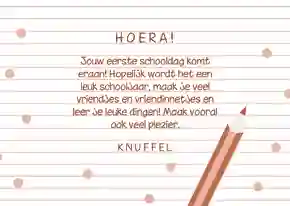 HOERA!
Jouw eerste schooldag komt
eraan! Hopelijk wordt het een
leuk schooljaar, maak je veel
vriendjes en vriendinnetjes en
leer je leuke dingen! Maak vooral
ook veel plezier.
KNUFFEL